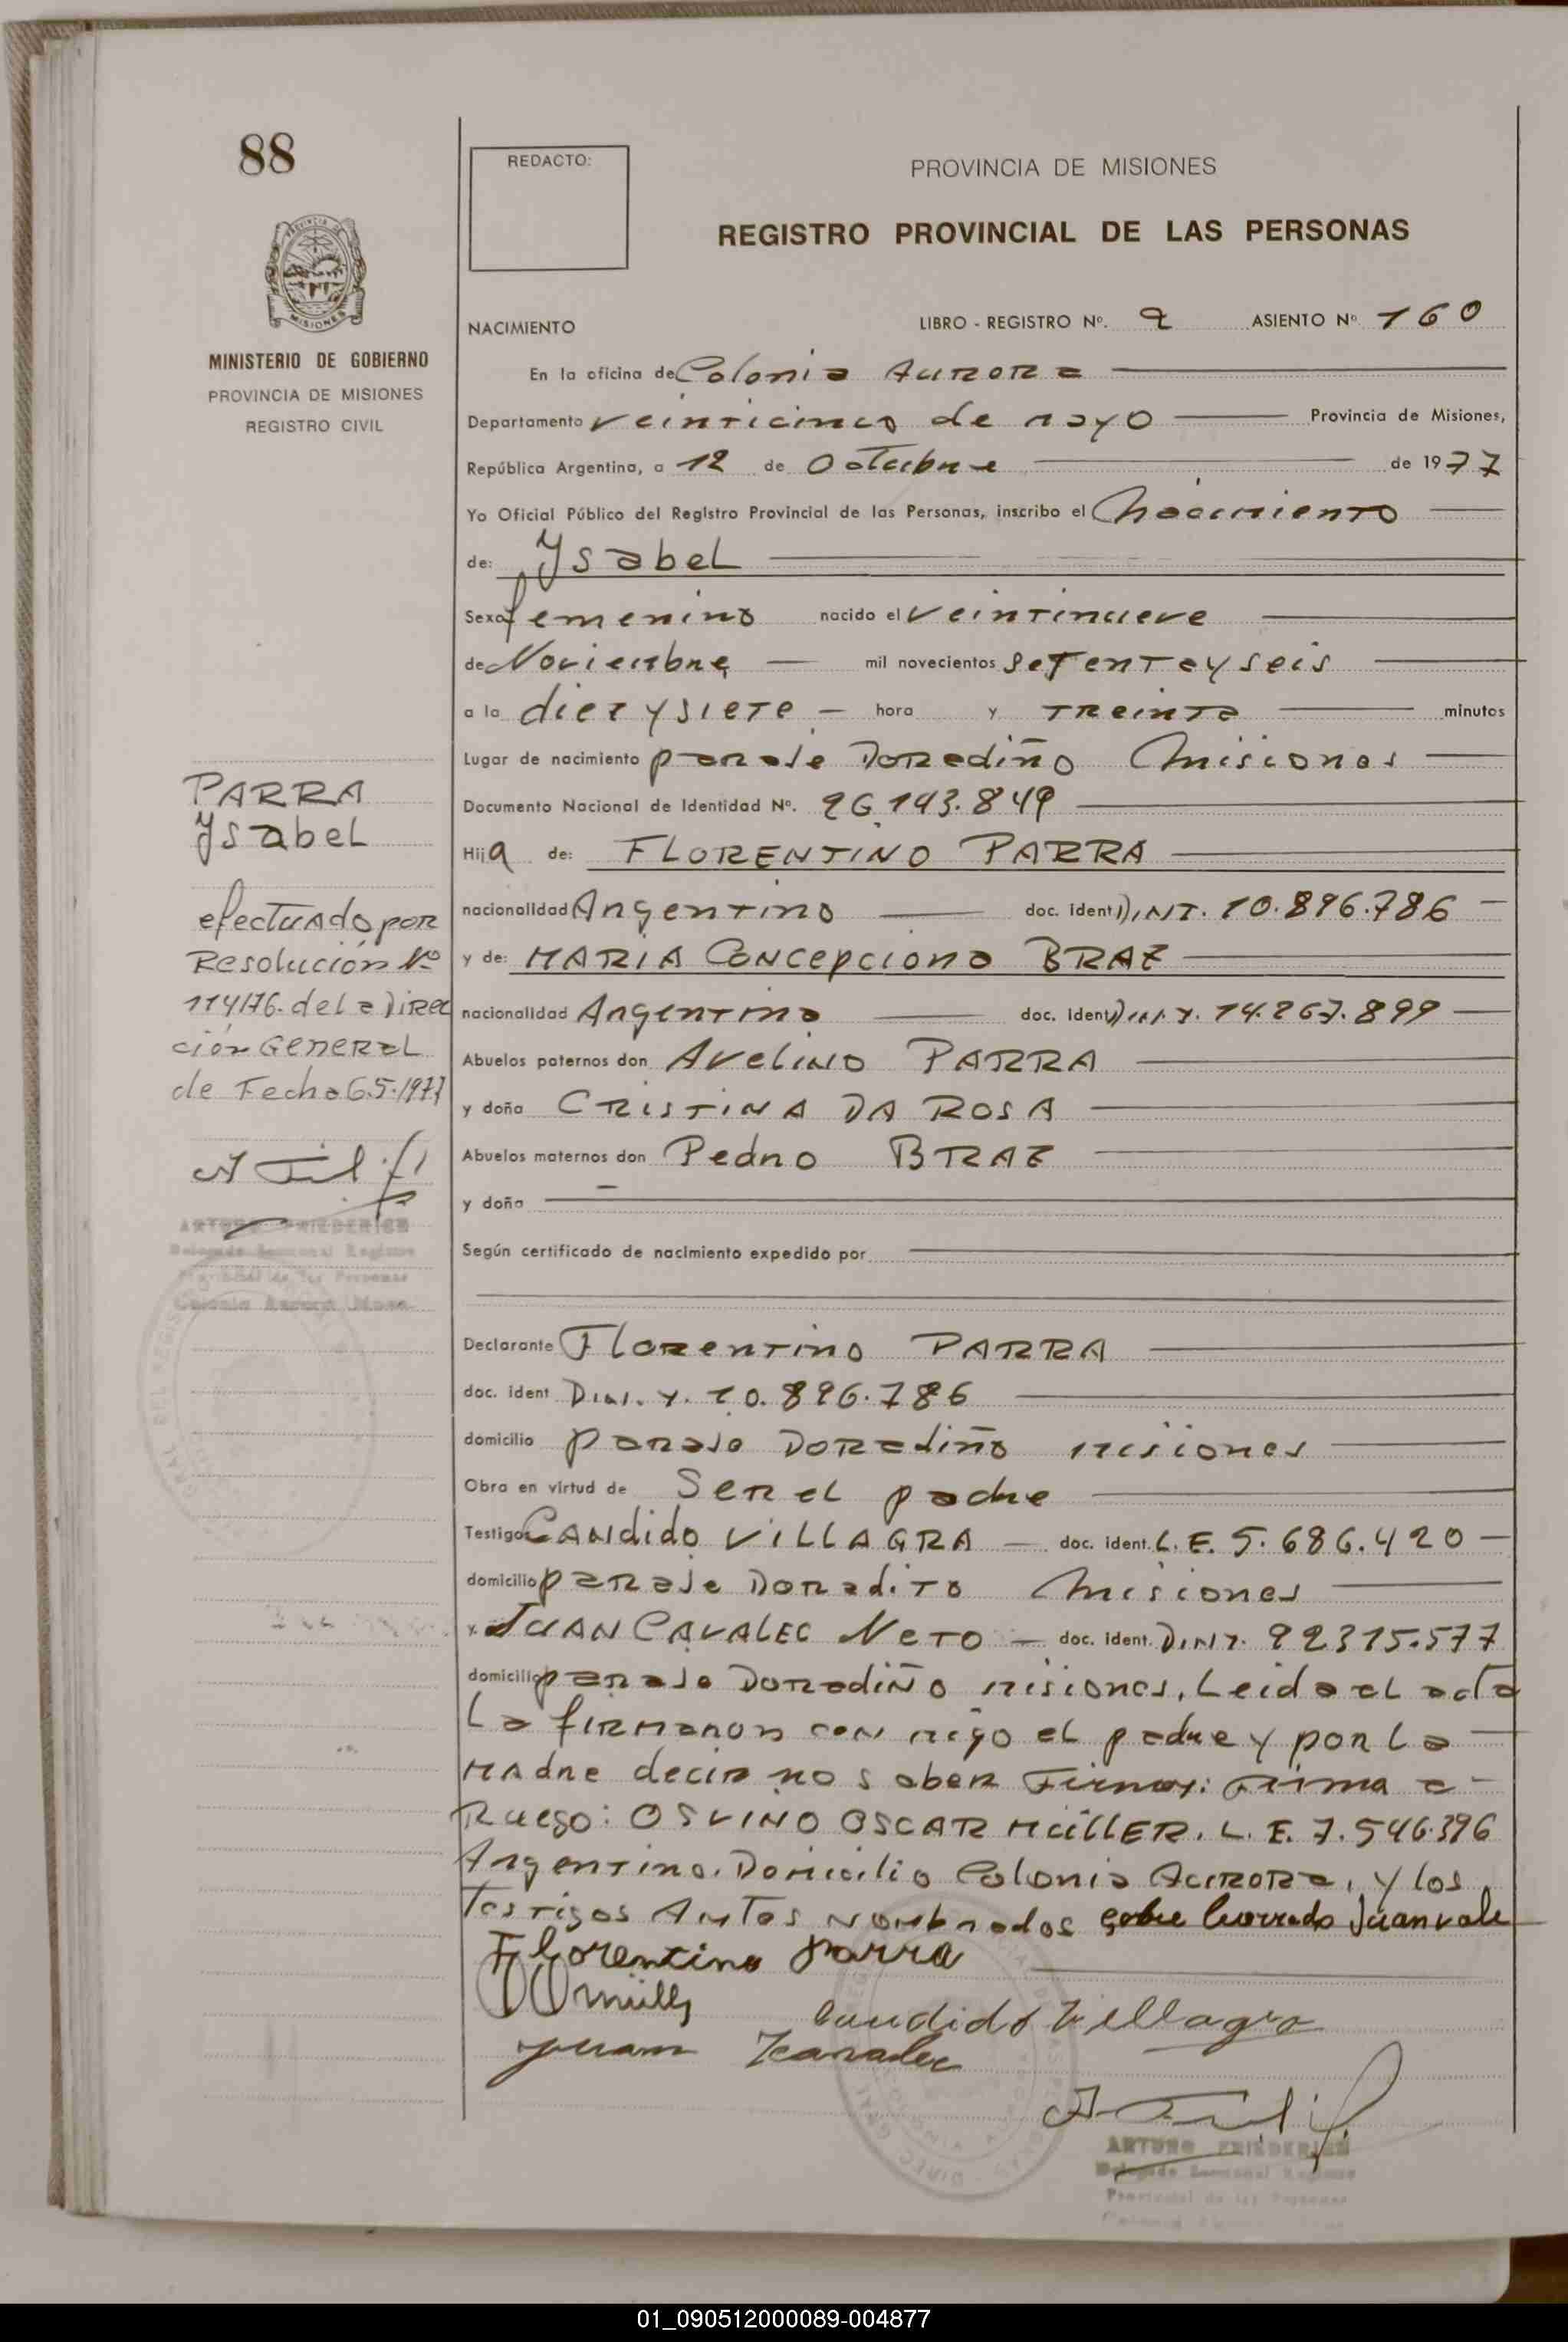 88
REDACTO:
PROVINCIA DE MISIONES
REGISTRO PROVINCIAL DE LAS PERSONAS
MISIONES
MINISTERIO DE GOBIERNO
PROVINCIA DE MISIONES
REGISTRO CIVIL
NACIMIENTO LIBRO - REGISTRO Nº. 2 ASIENTO Nº 160
En la oficina de Colonia AURORA
Departamento veinticinco de mayo Provincia de Misiones,
República Argentina, a 12 de Octubre de 1977
Yo Oficial Público del Registro Provincial de las Personas, inscribo el Nacimiento
de: Ysabel
Sexo femenino nacido el veintinueve
de Noviembre mil novecientos setentayseis
a la diez y siete hora y treinta minutos
Lugar de nacimiento paraje Doradiño Misiones
Documento Nacional de Identidad Nº. 26.143.849
Hija de: FLORENTINO PARRA
nacionalidad Argentino doc. ident D.N.I. 10.896.786
y de: MARIA Concepciona BRAZ
nacionalidad Argentina doc. ident D.N.I. 14.267.899
Abuelos paternos don Avelino PARRA
y doña CRISTINA DA ROSA
Abuelos maternos don Pedro BRAZ
y doña
Según certificado de nacimiento expedido por
PARRA
Ysabel
efectuado por
Resolución Nº
114/76. de la Direc
ción General
de Fecha 6.5.1977
ARTURO FRIEDERICH
Colonia Aurora
Declarante Florentino PARRA
doc. ident D.N.I. 10.896.786
domicilio paraje Doradiño misiones
Obra en virtud de Ser el padre
Testigos CANdido VILLAGRA doc. ident. L.E. 5.686.420
domicilio paraje Doradito Misiones
x JUAN CAVALEC NETO doc. ident. D.N.I. 92315.577
domicilio paraje Doradiño misiones, Leida el acta
La firmaron con migo el padre y por la
Madre decir no saber Firmar: Firma a
Ruego: OSVINO OSCAR MüLLER. L. E. 7.546.396
Argentino. Domicilio Colonia Aurora, y los
Testigos Antes nombrados sobre borrado Juan vale
Florentino Parra
Candido Villagra
Juan
ARTURO FRIEDERICH
01_090512000089-004877